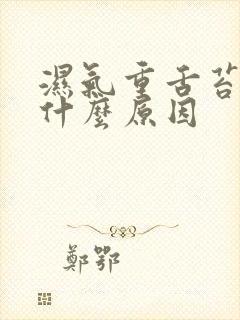 濕氣重舌苔
什麼原因
鄭鄂